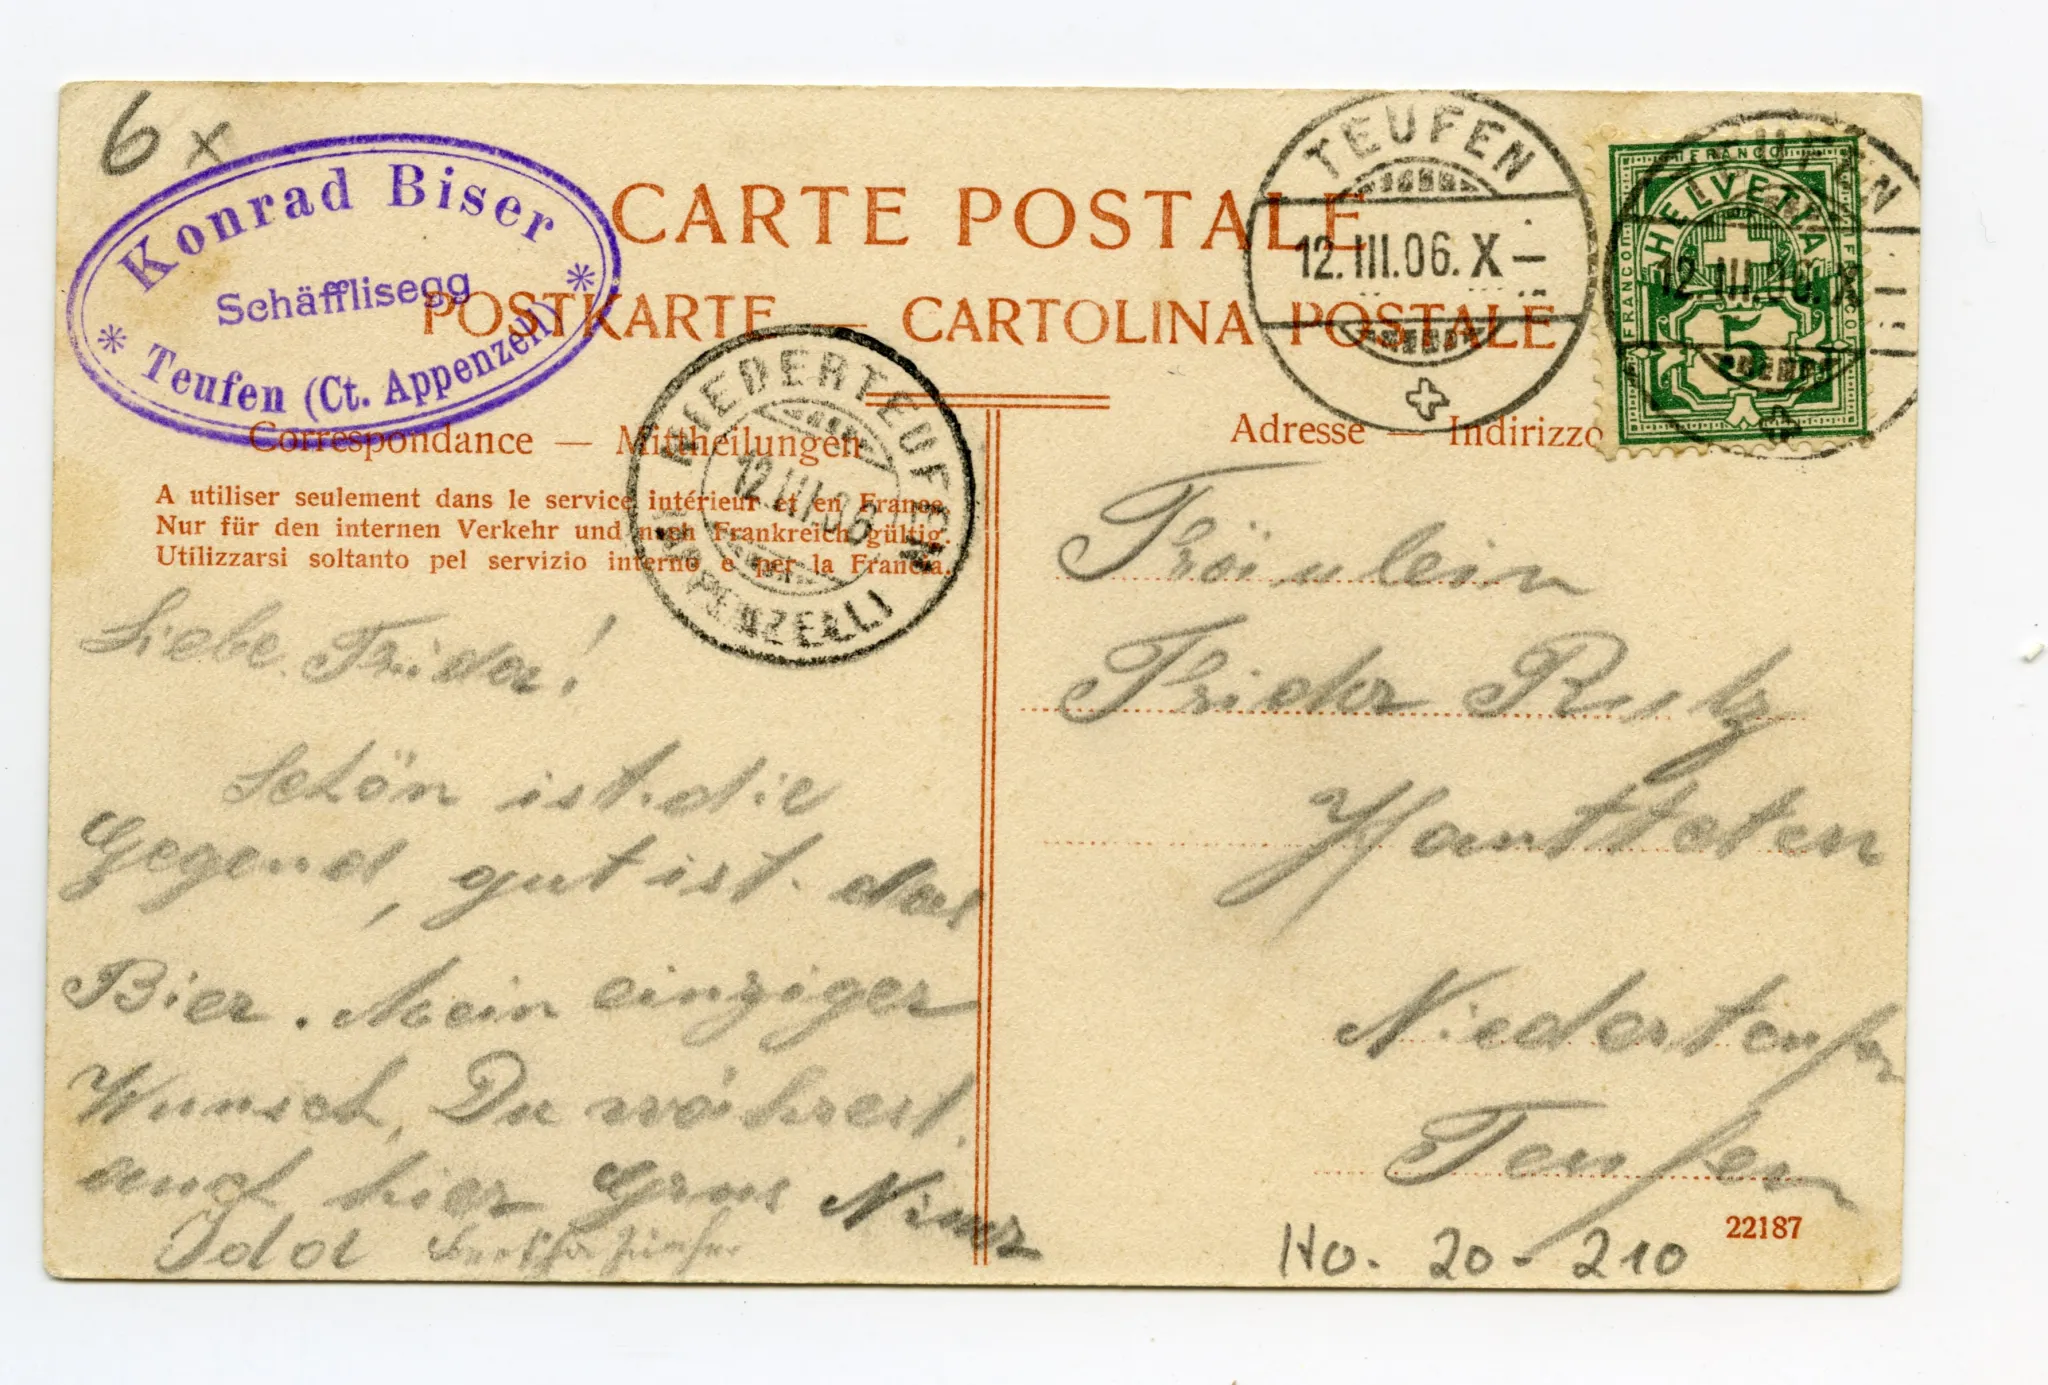 6 x
Konrad Biser
Schäfflisegg
* Teufen (Ct. Appenzell) *
CARTE POSTALE
POSTKARTE — CARTOLINA POSTALE
TEUFEN
12.III.06.X–
FRANCO
HELVETIA
FRANCO
FRANCO
5
TEUFEN
12.III.06.X–
NIEDERTEUFEN
12.III.06
(APPENZELL)
Correspondance — Mittheilungen
A utiliser seulement dans le service intérieur et en France.
Nur für den internen Verkehr und nach Frankreich gültig.
Utilizzarsi soltanto pel servizio interno e per la Francia.
Liebe Frida!
Schön ist die
Gegend, gut ist das
Bier. Mein einziger
Wunsch, Du währest
auch hier Grus
Adresse — Indirizzo
Fräulein
Frida Rutz
Niederteufen
Teufen
22187
Ho. 20-210